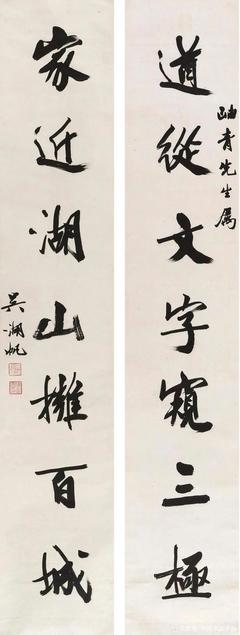 道從文字窺三極
岫青先生屬
家近湖山擁百城
吳湖帆